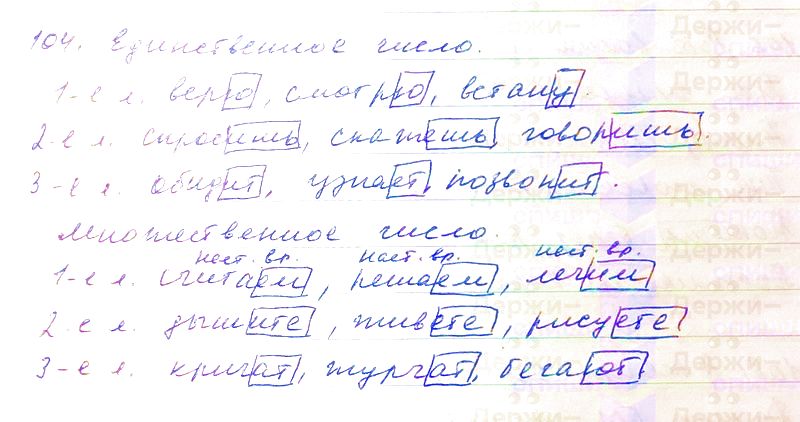 104. Единственное число.
1-е л. верю, смотрю, встану.
2-е л. спросишь, скажешь, говоришь.
3-е л. обидит, узнает, позвонит.
Множественное число.
наст. вр. наст. вр. наст. вр.
1-е л. считаем, решаем, лечим
2-е л. дышите, живёте, рисуете
3-е л. кричат, журчат, бегают
Держи–
Держи–
Держи–
Держи–
Держи–
Держи–
Держи–
Держи–